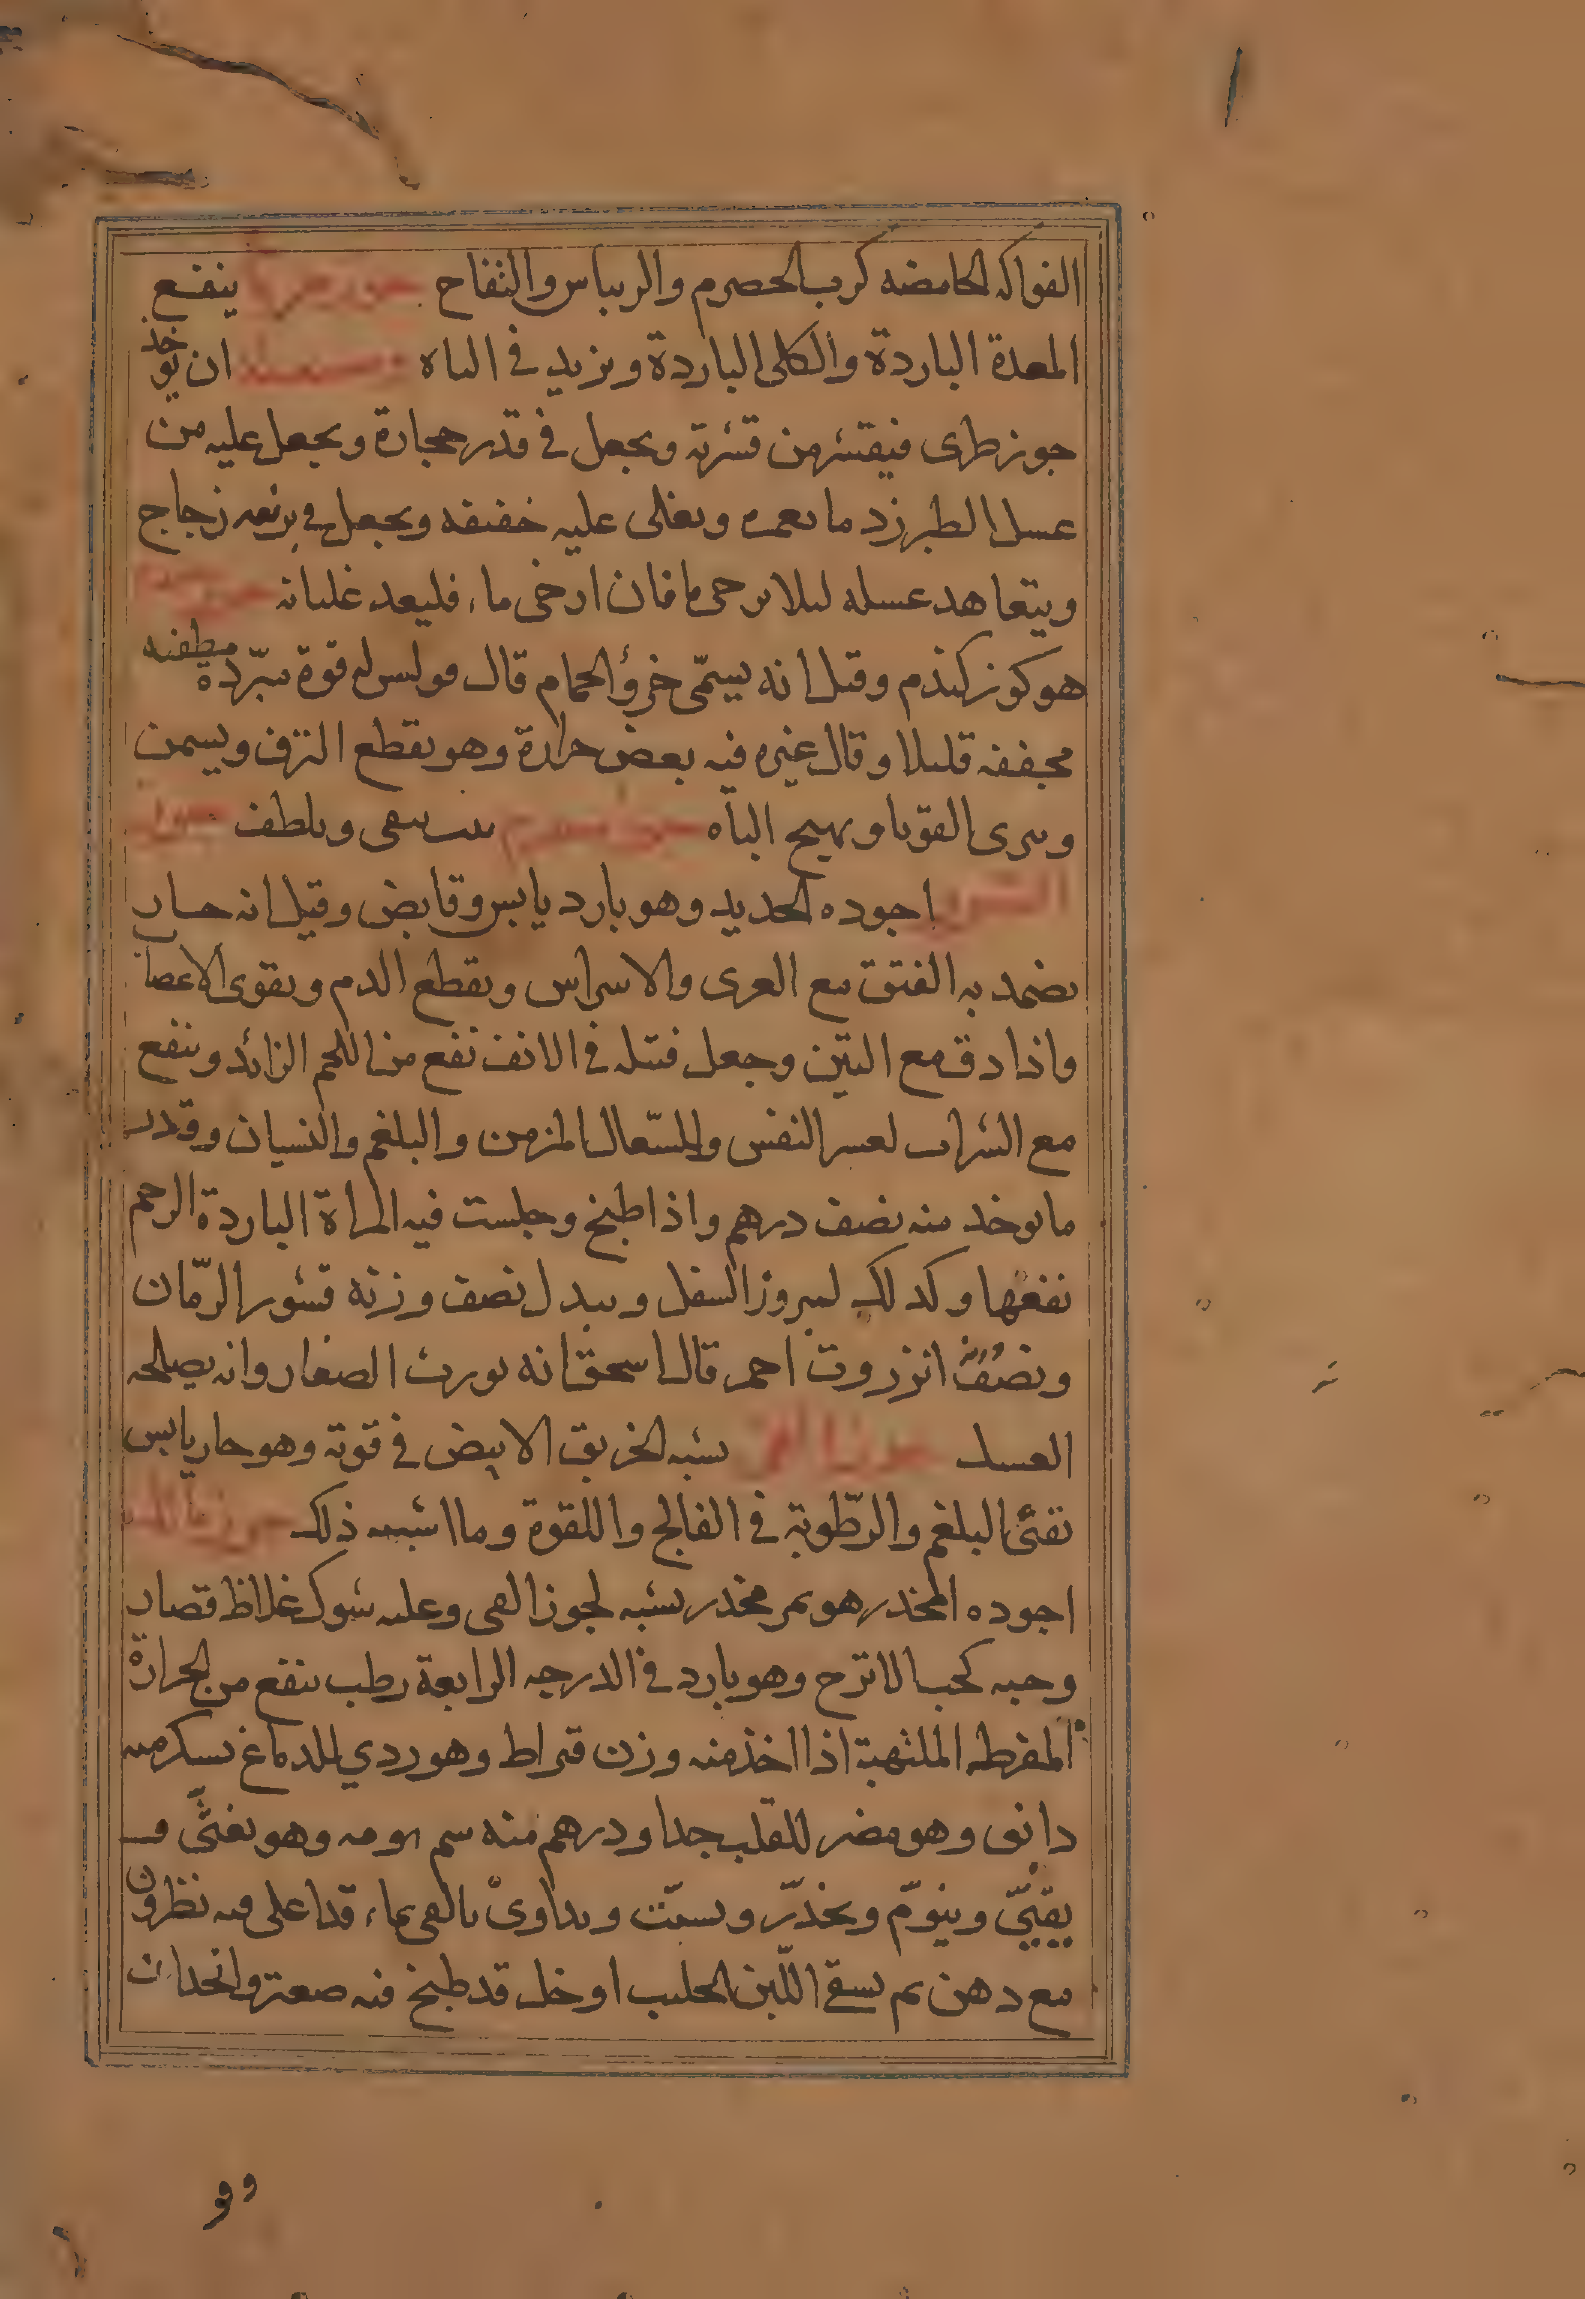 الفواكه الحامضه كرب الحصرم والريباس والتفاح جوز مربا ينفع
المعدة الباردة والكلى الباردة ويزيد في الباه وصنعته ان يوخذ
جوز طرى فيقشر من قشرته ويجعل في قدر حجارة ويجعل عليه من
عسل الطبرزد ما يغمره ويغلى عليه خفيفه ويجعل في برنيه زجاج
ويتعاهد عسله ليلا يرخى ما فان ارخى ماء فليعد غليانه
هو كوز كندم وقيل انه يسمّى خرؤ الحمام قال فولس له قوة مبرّدة مطفئه
مجففه قليلا وقال غيره فيه بعض حرارة وهو يقطع النزف ويسمن
ويبرى القوبا ويهيج الباه ينقى ويلطف جوز
السرو اجوده الحديد وهو بارد يابس وقابض وقيل انه حار
يضمد به الفتق مع الغرى والاسراس ويقطع الدم ويقوى الاعصا
واذا دق مع التين وجعل فتيله في الانف نفع من اللحم الزائد وينفع
مع الشراب لعسر النفس والسّعال المزمن والبلغم والنسيان وقدر
ما يوخذ منه نصف درهم واذا طبخ وجلست فيه المراة الباردة الرحم
نفعها وكذلك لبروز السفل ويبدل نصف وزنه قشور الرّمان
ونصف وزنه انزروت احمر قال اسحق انه يورث الصفار وانه يصلحه
العسل جوز القى يشبه الخربق الابيض في قوته وهو حار يابس
يقئ البلغم والرّطوبة في الفالج واللقوة وما اشبه ذلك جوز ماثل
اجوده المخدر هو ثمر مخدر يشبه لجوز القى وعليه شوك غلاظ قصار
وحبه كحب الاترج وهو بارد في الدرجه الرابعة رطب ينفع من الحرارة
المفرطه الملتهبة اذا اخذ منه وزن قيراط وهو ردي للدماغ يسكر منه
دانق وهو مضر للقلب جدا ودرهم منه سم يومه وهو يغثّى و
يقيّي وينوّم ويخدّر ويسبّت ويداوى بالقى بماء قد اغلى فيه نظرون
مع دهن ثم يسقى اللّبن الحليب او خل قد طبخ فيه صعتر وانجدان
وو